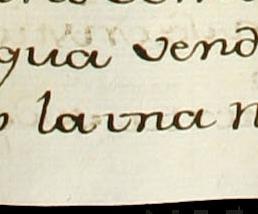 qua vend
la una n